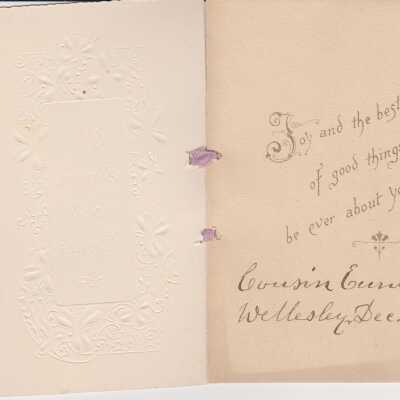 Joy and the best
of good things
be ever about yo
Cousin
Wellesley, Dec.